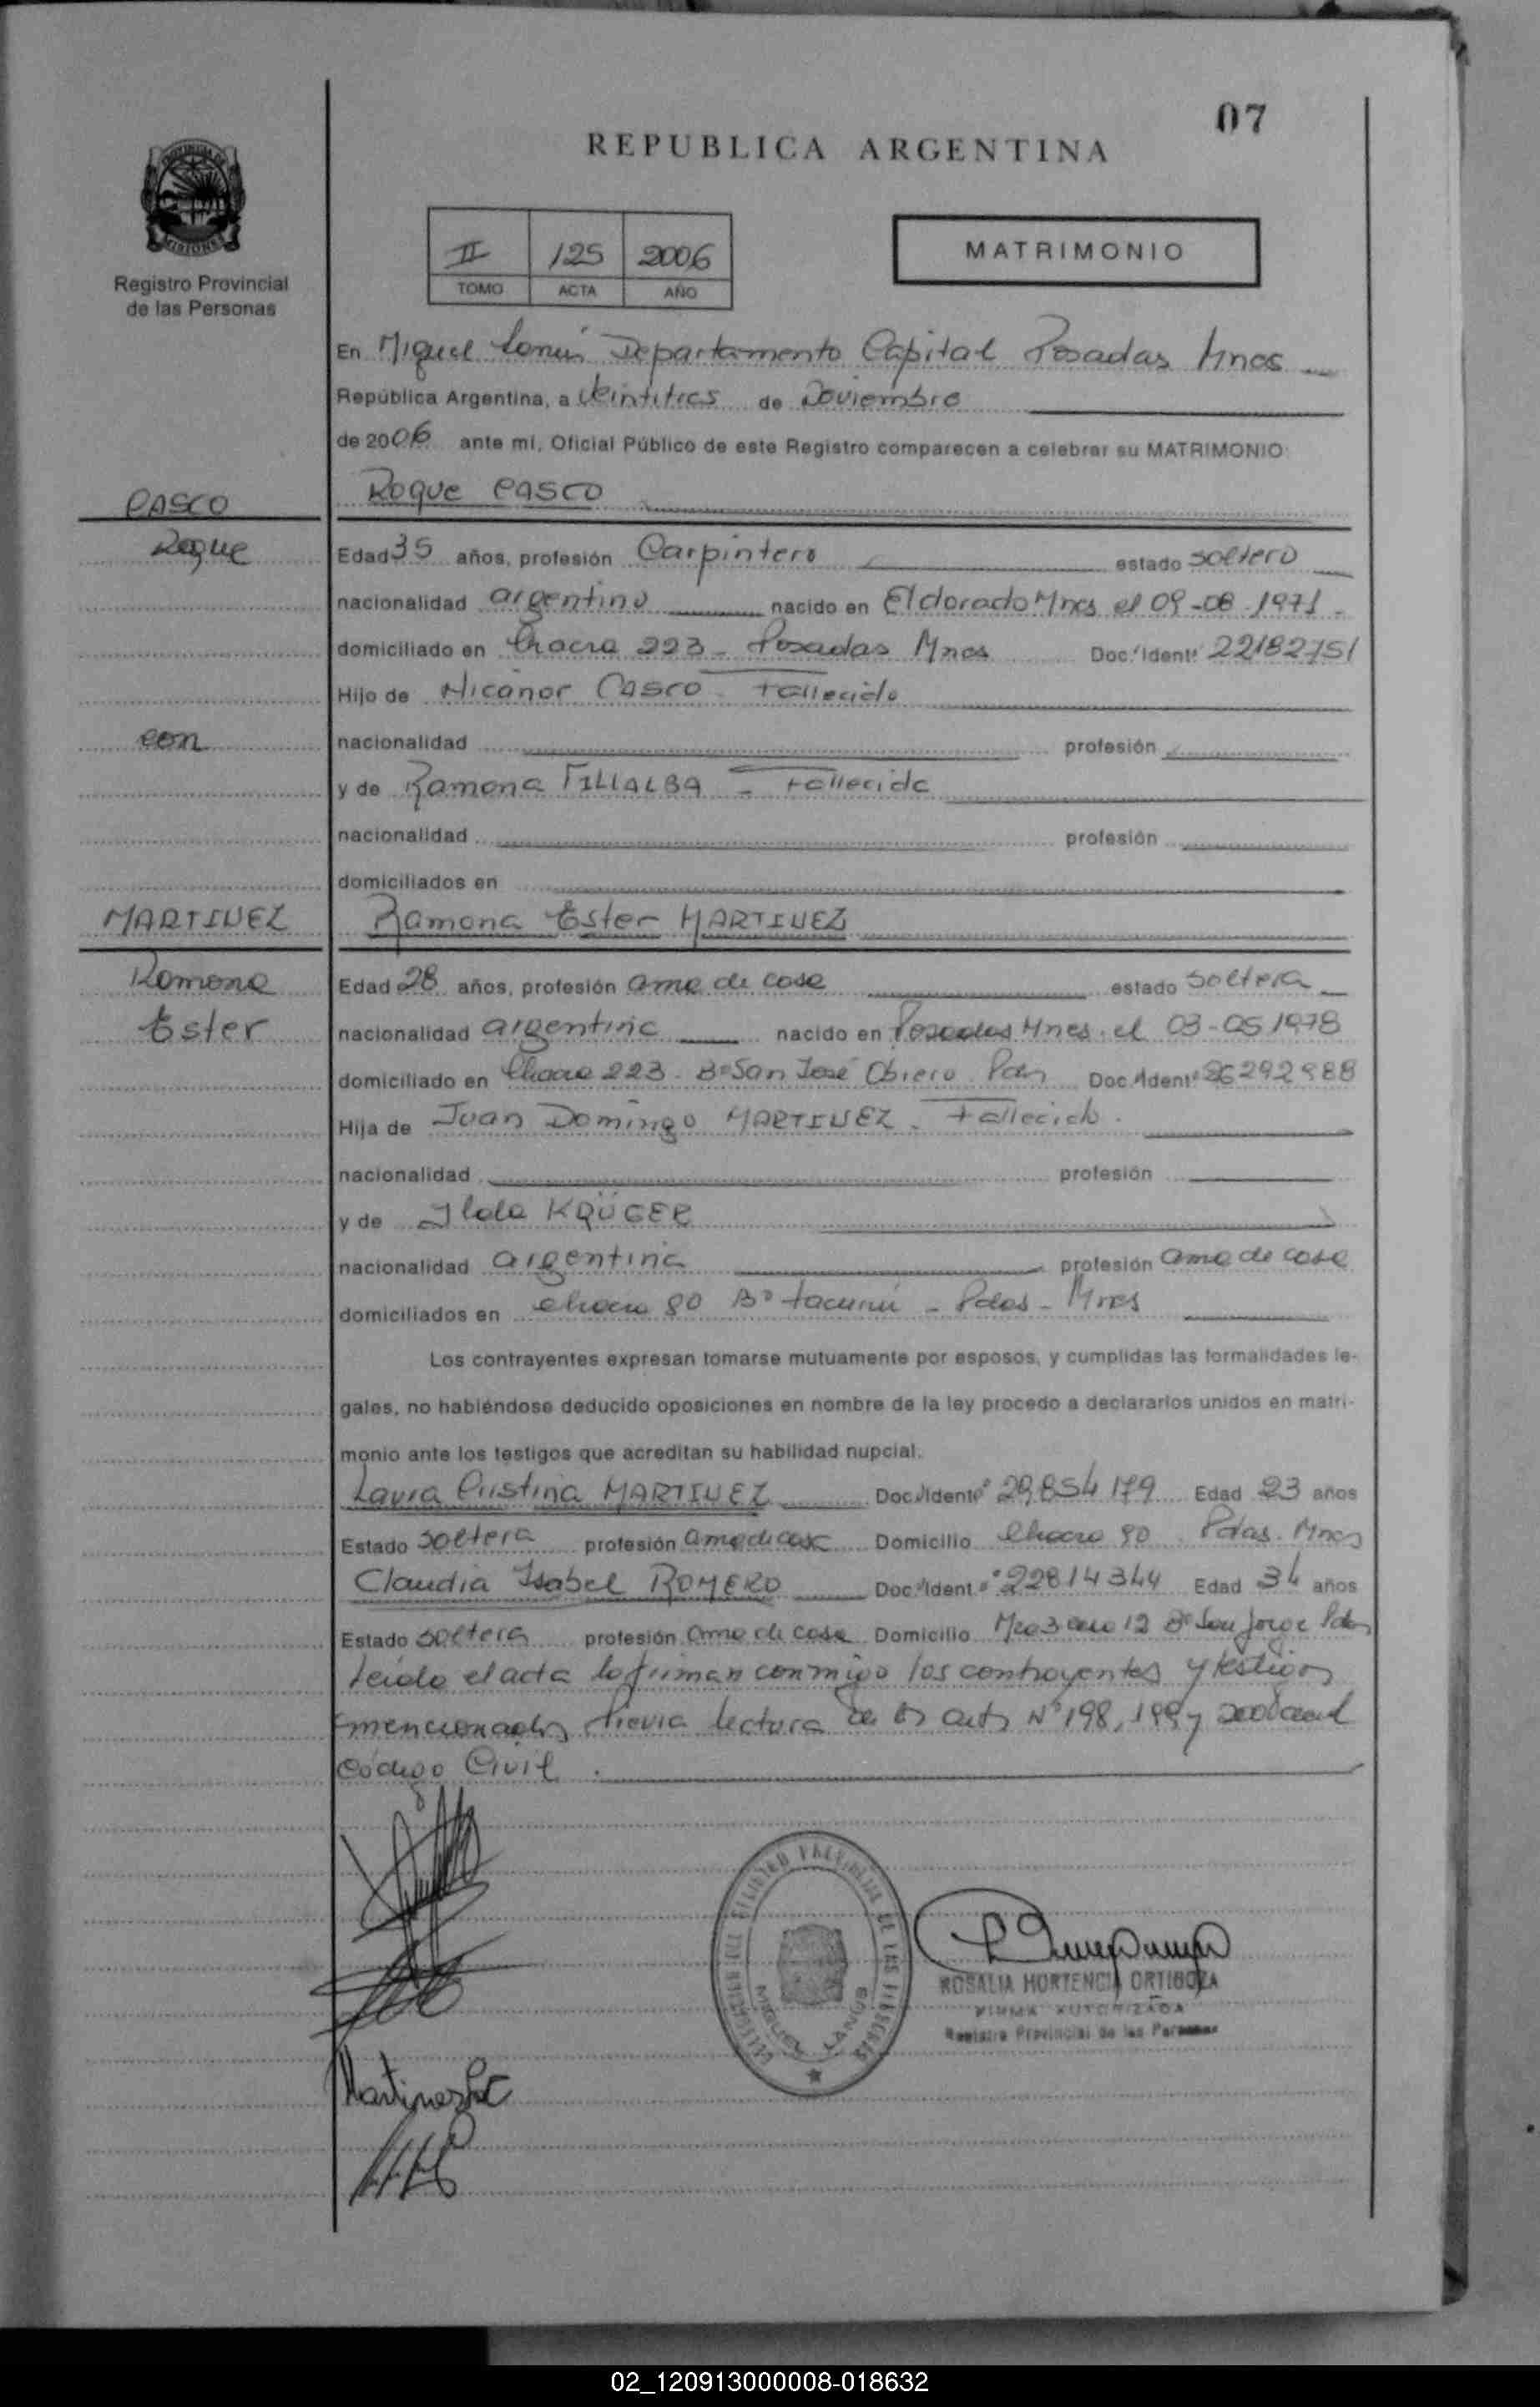 07
REPUBLICA ARGENTINA
PROVINCIA DE
MISIONES
Registro Provincial
de las Personas
II 125 2006
TOMO ACTA AÑO
MATRIMONIO
En Miguel Lanús Departamento Capital Posadas Mnes
República Argentina, a veintitres de Noviembre
de 2006 ante mí, Oficial Público de este Registro comparecen a celebrar su MATRIMONIO:
CASCO
Roque CASCO
Roque
Edad 35 años, profesión Carpintero estado soltero
nacionalidad argentino nacido en Eldorado Mnes el 09-08-1971
domiciliado en Chacra 223 - Posadas Mnes Doc. Ident. 22182751
Hijo de Nicanor CASCO - Fallecido
con
nacionalidad profesión
y de Ramona VILLALBA - Fallecida
nacionalidad profesión
domiciliados en
MARTINEZ
Ramona Ester MARTINEZ
Ramona
Edad 28 años, profesión ama de casa estado soltera
Ester
nacionalidad argentina nacido en Posadas Mnes. el 03-05 1978
domiciliado en Chacra 223 - Bº San José Obrero Pdas Doc. Ident.
Hija de Juan Domingo MARTINEZ - Fallecido.
nacionalidad profesión
y de KRÜGER
nacionalidad argentina profesión ama de casa
domiciliados en chacra 80 Bº - Pdas - Mnes
Los contrayentes expresan tomarse mutuamente por esposos, y cumplidas las formalidades le-
gales, no habiéndose deducido oposiciones en nombre de la ley procedo a declararlos unidos en matri-
monio ante los testigos que acreditan su habilidad nupcial.
Laura Cristina MARTINEZ Doc. Ident. 29.854.179 Edad 23 años
Estado soltera profesión ama de casa Domicilio Chacra 80 Pdas. Mnes
Claudia Isabel ROMERO Doc. Ident. 22814344 Edad 34 años
Estado soltera profesión ama de casa Domicilio Mza 3 casa 12 Bº San Jorge Pdas
Leída el acta la firman conmigo los contrayentes y testigos
mencionados previa lectura de los arts Nº 198, 199 y 200 del
Código Civil.
MIGUEL LANUS
ROSALIA HORTENCIA ORTIGOZA
FIRMA AUTORIZADA
Registro Provincial de las Personas
02_120913000008-018632